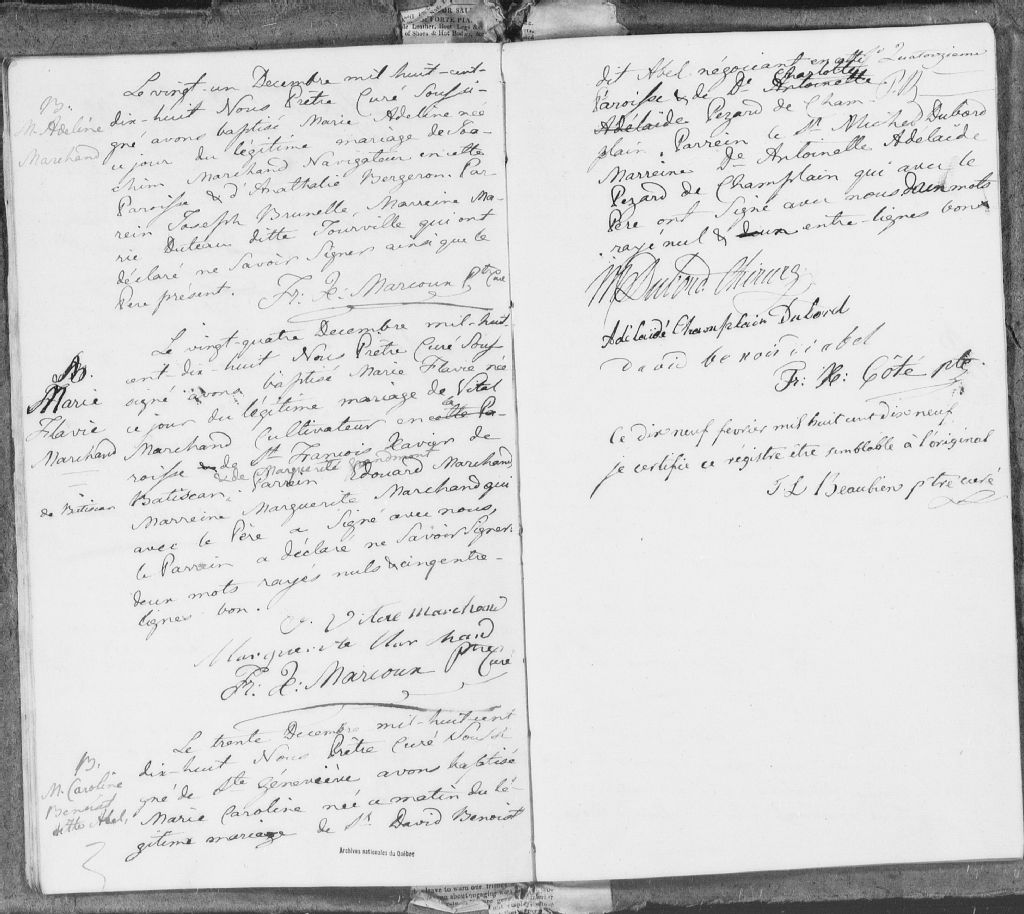 B.
M. Adeline
Marchand
Le vingt-un Decembre mil huit-cent-
dix-huit Nous Prêtre Curé Soussi-
gné avons baptisé Marie Adeline née
ce jour du légitime mariage de Joa-
chim Marchand Navigateur en cette
Paroisse & d'Nathalie Bergeron. Par-
rein Joseph Brunelle, Marreine Ma-
rie Duteau ditte Tourville qui ont
déclaré ne Savoir Signer ainsi que le
Père présent. Fr. X: Marcoux Ptre Curé
B.
Marie
Flavie
Marchand
de Batiscan
Le vingt-quatre Decembre mil-huit-
cent-dix-huit Nous Prêtre Curé Sous
signé avons baptisé Marie Flavie née
ce jour du légitime mariage de Vital
Marchand Cultivateur en cette la Pa-
roisse de St. François Xavier de
& de Marguerite
Batiscan; Parrein Edouard Marchand
Marreine Marguerite Marchand qui
avec le Père a Signé avec nous,
le Parrein a déclaré ne Savoir Signer.
deux mots rayés nuls & cinq entre-
lignes bon.
Marchand
Marguerite Marchand
Fr: X: Marcoux Ptre Curé
B.
M. Caroline
Benoist
ditte Abel,
Le trente Decembre mil-huit-cent
dix-huit Nous Prêtre Curé Soussi
gné de Ste Généviève avons baptisé
Marie Caroline née ce matin du lé-
gitime mariage de Sr. David Benoist
Archives nationales du Québec
dit Abel négociant en cette
Quatorzieme
Paroisse & de De Charlotte Antoinette
Adélaïde Pezard de Cham-
plain. Parrein le Sr. Michel Dubord
Marreine De Antoinette Adelaïde
Pezard de Champlain qui avec le
Père ont Signé avec nous deux mots
rayé nul & deux entre-lignes bons
Dubord Chirurg
Adélaïdé Champlain Dubord
david benoist abel
Fr: X: Côté ptre.
Ce dix neuf février mil huit cent dix neuf
je certifie ce régistre être semblable à l'original
J L Beaubien ptre curé